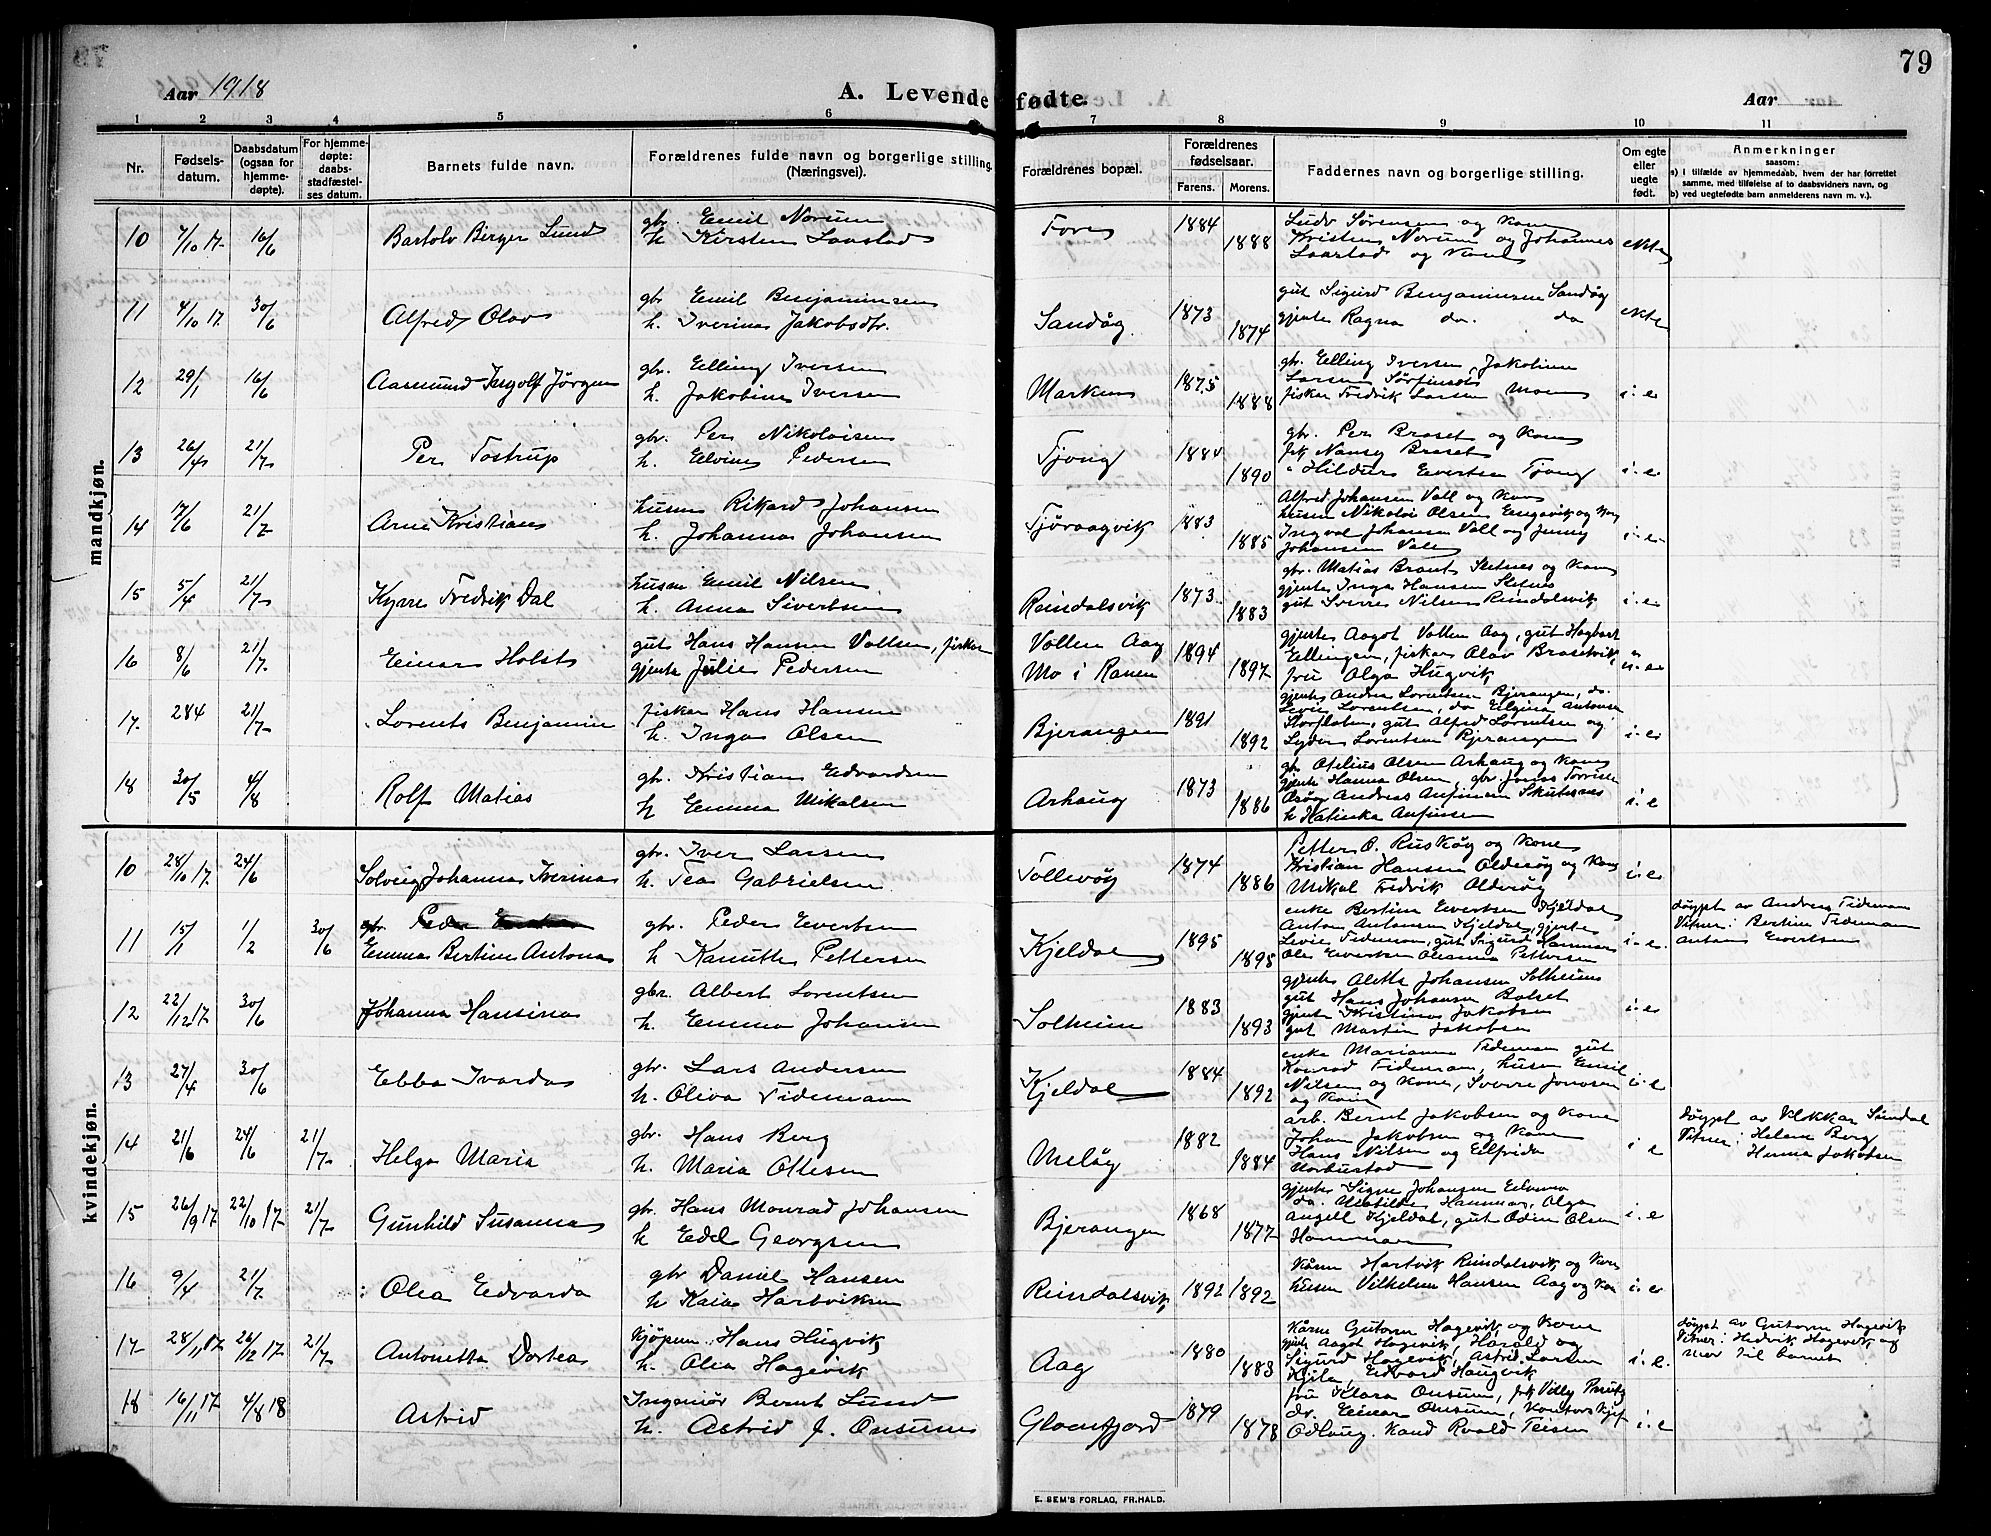 79
Aar 1918
A. Levende fødte.
Aar
1 2 3 4 5 6 7 8 9 10 11
Nr.
Fødsels-
datum.
Daabsdatum
(ogsaa for
hjemme-
døpte).
For hjemme-
døpte:
daabs-
stadfæstel-
ses datum.
Barnets fulde navn.
Forældrenes fulde navn og borgerlige stilling.
(Næringsvei).
Forældrenes bopæl.
Forældrenes
fødselsaar.
Farens. Morens.
Faddernes navn og borgerlige stilling.
Om egte
eller
uegte
født.
Anmerkninger
saasom:
a) I tilfælde av hjemmedaab, hvem der har forrettet
samme, med tilføielse af to daabsvidners navn, og
b) ved uegtefødte barn anmelderens navn m. v.)
mandkjøn.
10 7/10 17. 16/6 Bartolv Berger Lund
gbr. Emil Norum
h. Kirsten
Fore 1884 1888
Ludv Sørensen og kone
Kristen Norum og Johannes
og kone
ekte
11 4/10 17. 30/6 Alfred Olav
gbr. Emil Benjaminsen
h. Iverina Jakobsdtr.
Sandøg. 1873 1874
gut Sigurd Benjaminsen Sandøg
gjente Ragna do. do
ekte
12 29/1 16/6 Aasmund Ingolf Jørgen
gbr. Elling Iversen
h. Jakobine Iversen
Marken 1875 1888
gbr. Elling Iversen, Jakobine
Larsen
fisker Fredrik Larsen Moen
i. e.
13 26/4 21/7 Per Tostrup
gbr. Per Nikolaisen
h. Elvine Pedersen
Tjong 1884 1890
gbr. Per Braset og kone
frk Nansy Braset
" Hildur Evertsen Tjong
i. e.
14 17/6 21/7 Arne Kristian
husm Rikard Johansen
h. Johanna Johansen
Tjøraagvik 1883 1885
Alfred Johansen Vall og kone
husm Nikolai Olsen Engavik og kone
Ingval Johansen Vall og Jenny
Johansen Vall
i. e.
15 5/4 21/7 Kyrre Fredrik Dal
husm Emil Nilsen
h. Anna Sivertsen
Reindalsvik 1873. 1883
gbr. Matias Brant Sletnes og kone
gjente Inga Hansen Sletnes
gut Sverre Nilsen Reindalsvik
i. e.
16 8/6 21/7. Einar Holst
gut Hans Hansen Vollsen, fisker
gjente Julie Pedersen
Vollen Aag
Mo i Ranen
1894 1897
gjente Aagot Vollen Aag, gut Hagbart
Ellingsen, fisker Olav Brasetvik,
fru Olga Hugvik
u. e.
17. 284 21/7. Lorents Benjamin
fisker Hans Hansen
h. Inga Olsen
Bjerangen 1891 1892
gjente Andrea Lorentsen Bjerangen, do.
Levie Lorentsen, do Elgina Antonsen
Storflaten, gut Alfred Lorentsen og
Lyder Lorentsen Bjerangen
i. e.
18 30/5 4/8 Rolf Matias
gbr. Kristian Edvardsen
h Emma Mikalsen
Arhaug 1873 1886
gbr Otelius Olsen Arhaug og kone
gjente Hanna Olsen, gbr. Jonas Torrisen
Andreas Anfinsen
h Katinka Anfinsen
i. e
kvindekjøn.
10 28/10 17. 24/6 Solveig Johanna Iverina
gbr. Iver Larsen
h. Tea Gabrielsen
Tollevøg 1874 1886
Petter O. Ruskøg og kone
Kristian Hansen Oldesøg og kone
Mikal Fredrik Oldesøg
i. e.
11 15/1 1/2 30/6
gbr. Peder
Emma Bertine Antona
gbr. Peder Evertsen
h Kanutte Pettersen
Kjeldal 1895 1895
enke Bertine Evertsen Kjeldal
Anton Antonsen Kjeldal, gjente
Levie Tidemann, gut Sigurd Hammer
Ole Evertsen Oleanna Pettersen
i. e.
døypt av Andrea Tidemann
Vitner: Bertine Tidemann
Antona Evertsen
12 22/12 17. 30/6 Johanna Hansina
gbr. Albert Lorentsen
h. Emma Johansen
Solheim 1883 1893
gjente Alette Johansen Solheim
gut Hans Johansen Bolset
gjente Kristina Jakobsen
gut Martin Jakobsen
i. e.
13 27/4 30/6 Ebba Ivarda
gbr. Lars Andersen
h. Oliva Tidemann
Kjeldal 1884 1892
enke Marianne Tidemann gut
Konrad Tidemann, husm Emil
Nilsen og kone, Sverre Jonassen
og kone
i. e
14 21/6 24/6 21/7. Helga Maria
gbr. Hans Berg
h. Maria Ottesen
Meløg 1882 1884
arb. Bernt Jakobsen og kone
Johan Jakobsen og kone
Hans Nilsen og Elfrida
Norbustad
i e
døypt av Sundal
Vitner: Helene Berg
Henna Jakobsen
15 26/9 17 22/10 17 21/7. Gunhild Susanna
gbr. Hans Monrad Johansen
h Edel Georgsen
Bjerangen 1868 1877
gjente Signe Johansen
do. Matilde Hammer, Olga
Angell Kjeldal, gut Odin Olsen
Hammer
i. e
16 9/4 21/7. Olea Edvarda
gbr Daniel Hansen
h Kaia Hartviksen
Reindalsvik, 1892 1892
Kårm Hartvik Reindalsvik og kone
husm Vilhelm Hansen Aag og kone
i. e.
17 28/11 17. 26/12 17 21/7 Antonetta Dortea
kjøpm. Hans Hugvik
h. Olea Hagevik
Aag 1880 1883
Kårm Gutorm Hagevik og kone
gjente Aagot Hagevik, Harald og
Sigurd Hagevik, Astrid Larsen
Kjila, Edvard Haugvik
i. e.
døypt av Gutorm Hagevik
Vitner: Hedvik Hagevik og
mor til barnet
18 16/11 17 4/8 18 Astrid
Ingeniør Bernt Lund
h. Astrid J. Onsum
Glomfjord 1879 1878
fru Klara Onsum, frk Villy
dr. Einar Onsum, Kontorskjef
Odlaug. kand Roald Teisen
i. e
E. SEM'S FORLAG, FR.HALD.